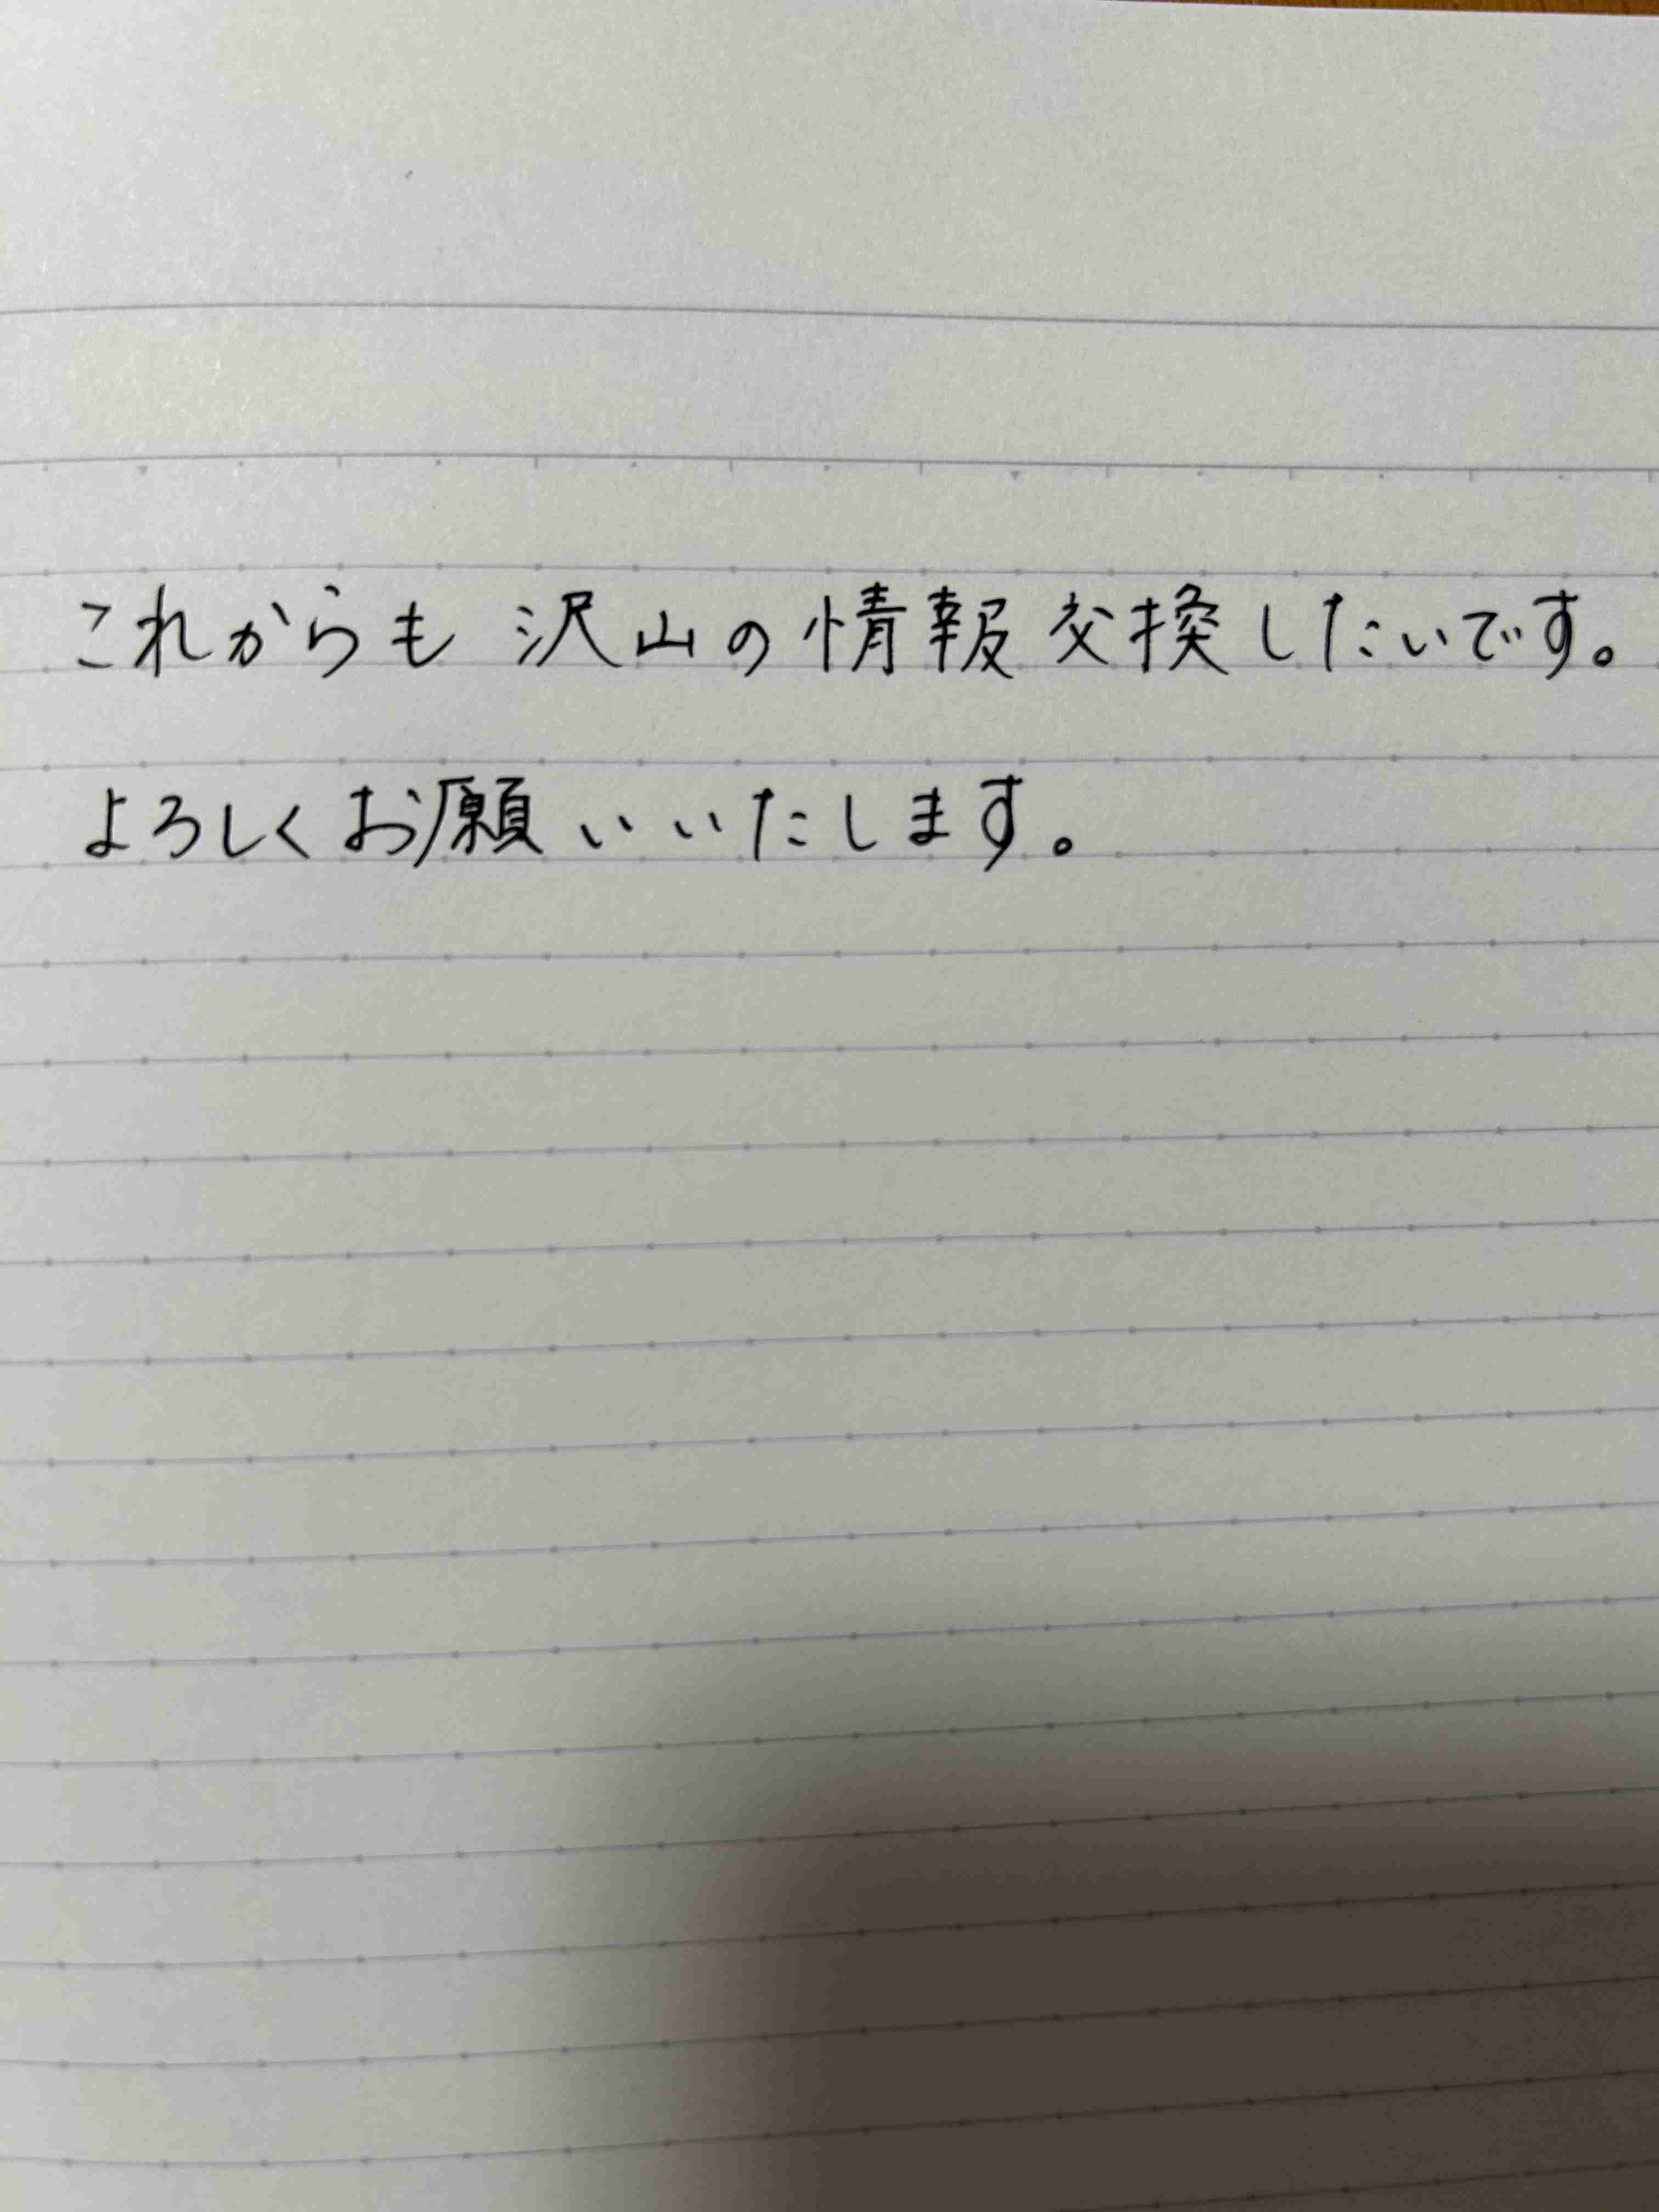 これからも沢山の情報交換したいです。
よろしくお願いいたします。